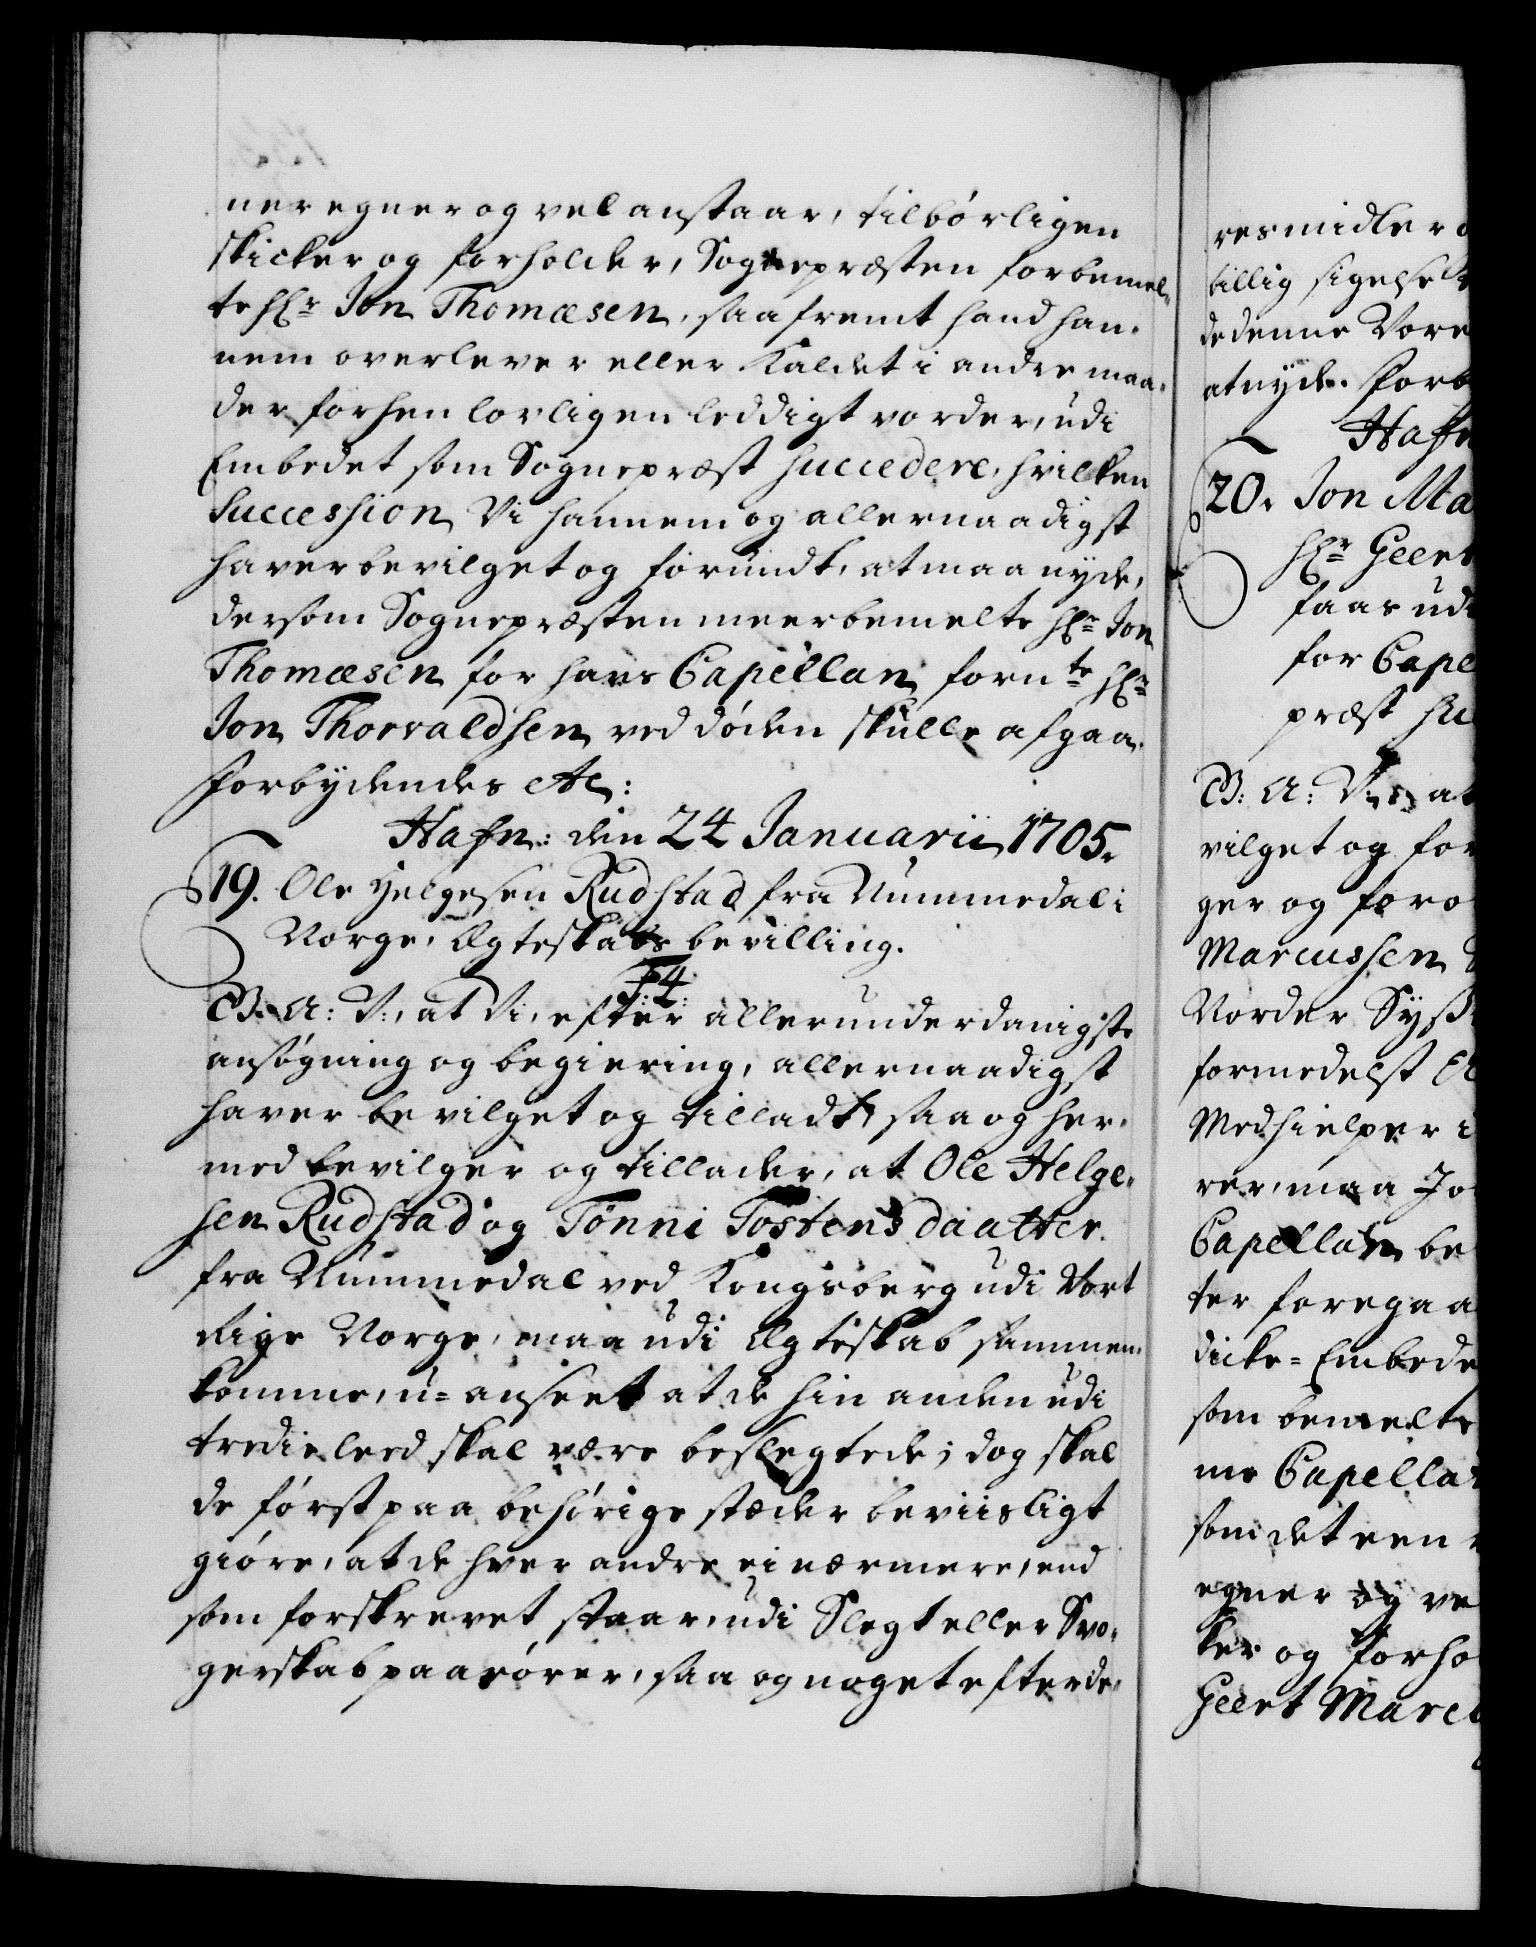 ner egner og vel anstaar, tilbörligen
skicker og forholder, Sognepræsten forbemel-
te Hr Jon Thomæsen, saafremt hand han-
nem overlever eller Kaldet i andre maa-
der forhen lovligen leddigt vorder, udi
Embedet som Sognepræst succedere, hvilken
Succession Vi hannem og allernaadigst
haver bevilget og forundt, at maa nyde,
dersom Sognepræsten meerbemelte Hr Jon
Thomæsen for hans Capellan fornte Hr
Jon Thorvaldsen ved döden skulle afgaa.
Forbydendes etc:
Hafn: den 24 Januarii 1705.
19. Ole Helgesen Rudstad fra Nummedal i
Norge, Ægteskabs bevilling.
F: 4.
G: A: V:, at Vi, efter allerunderdanigste
ansögning og begiering, allernaadigst
haver bevilget og tilladt, saa og her-
med bevilger og tillader, at Ole Helge-
sen Rudstad og Tönni Tostensdaatter
fra Nummedal ved Kongsberg udi Vort
Rige Norge, maa udi Ægteskab sammen-
komme, u=anseet at de hin anden udi
tredie leed skal være beslegtede; dog skal
de först paa behörige stæder beviisligt
giöre, at de hver andre ei nærmere, end
som forskrevet staar, udi Slegt eller Svo-
gerskab paarörer, saa og noget efter de-
res midler o
billig sigelse
de denne Vore
at nyde. Forb
Hafn
20. Jon Ma
Hr Geert
faar udi
for Cape
præst su
G: A: V:, at
vilget og for
ger og foro
Marcussen
Norder Syß
formedelst
Medhielper i
rer, maa Jo
Capellan be
ter foregaa
dicke=Embede
som bemelte
me Capella
som det een
egner og ve
ker og forho
Geert Marcu